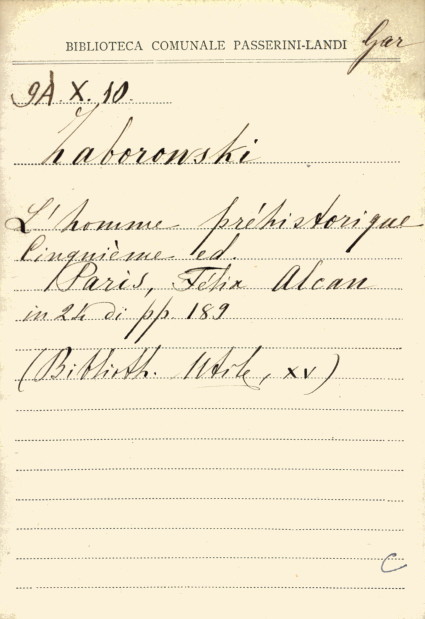 BIBLIOTECA COMUNALE PASSERINI-LANDI Gar
9A. X. 10.
Zaborowski
L'homme préhistorique
Cinquième ed.
Paris, Félix Alcan
in 24 di pp. 189
(Biblioth. Utile, XV)
C